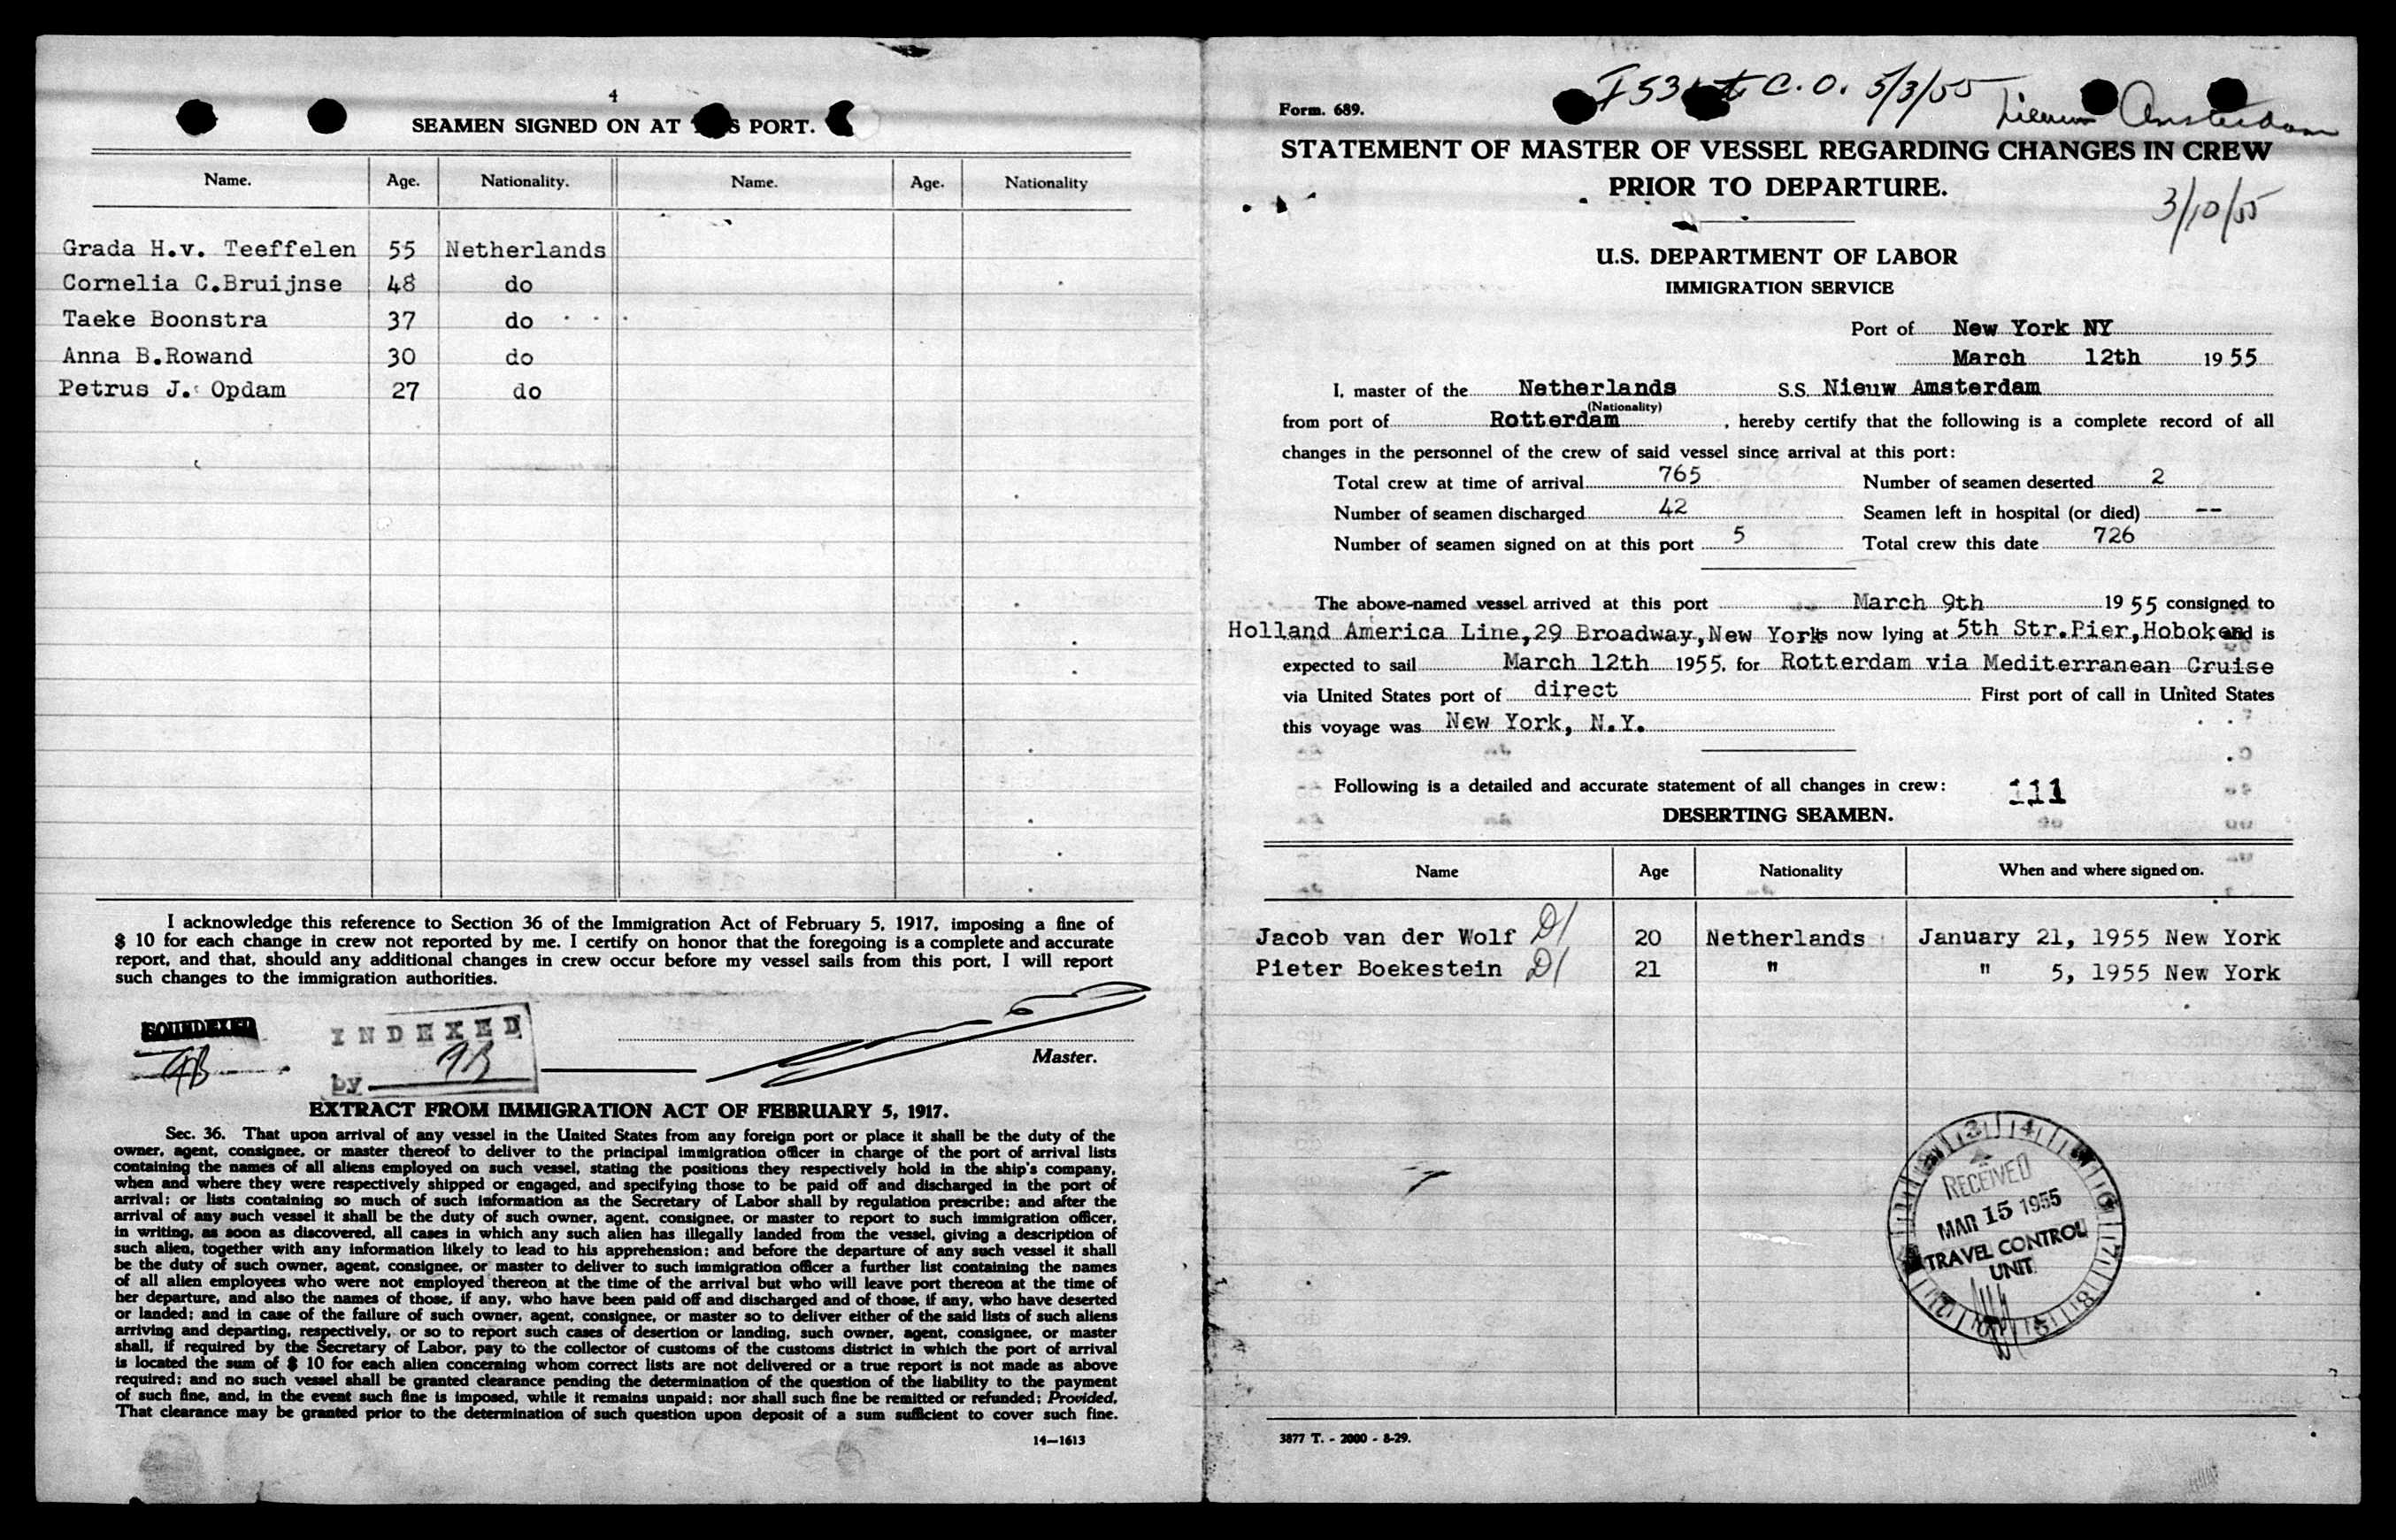 4
SEAMEN SIGNED ON AT THIS PORT.
Name. Age. Nationality. Name. Age. Nationality
Grada H.v. Teeffelen 55 Netherlands
Cornelia C.Bruijnse 48 do
Taeke Boonstra 37 do
Anna B.Rowand 30 do
Petrus J. Opdam 27 do
I acknowledge this reference to Section 36 of the Immigration Act of February 5, 1917, imposing a fine of
$ 10 for each change in crew not reported by me. I certify on honor that the foregoing is a complete and accurate
report, and that, should any additional changes in crew occur before my vessel sails from this port, I will report
such changes to the immigration authorities.
SOUNDEXED
INDEXED
by
Master.
EXTRACT FROM IMMIGRATION ACT OF FEBRUARY 5, 1917.
Sec. 36. That upon arrival of any vessel in the United States from any foreign port or place it shall be the duty of the
owner, agent, consignee, or master thereof to deliver to the principal immigration officer in charge of the port of arrival lists
containing the names of all aliens employed on such vessel, stating the positions they respectively hold in the ship's company,
when and where they were respectively shipped or engaged, and specifying those to be paid off and discharged in the port of
arrival; or lists containing so much of such information as the Secretary of Labor shall by regulation prescribe; and after the
arrival of any such vessel it shall be the duty of such owner, agent, consignee, or master to report to such immigration officer,
in writing, as soon as discovered, all cases in which any such alien has illegally landed from the vessel, giving a description of
such alien, together with any information likely to lead to his apprehension; and before the departure of any such vessel it shall
be the duty of such owner, agent, consignee, or master to deliver to such immigration officer a further list containing the names
of all alien employees who were not employed thereon at the time of the arrival but who will leave port thereon at the time of
her departure, and also the names of those, if any, who have been paid off and discharged and of those, if any, who have deserted
or landed; and in case of the failure of such owner, agent, consignee, or master so to deliver either of the said lists of such aliens
arriving and departing, respectively, or so to report such cases of desertion or landing, such owner, agent, consignee, or master
shall, if required by the Secretary of Labor, pay to the collector of customs of the customs district in which the port of arrival
is located the sum of $ 10 for each alien concerning whom correct lists are not delivered or a true report is not made as above
required; and no such vessel shall be granted clearance pending the determination of the question of the liability to the payment
of such fine, and, in the event such fine is imposed, while it remains unpaid; nor shall such fine be remitted or refunded: Provided,
That clearance may be granted prior to the determination of such question upon deposit of a sum sufficient to cover such fine.
14—1613
C.O. 5/3/55
Nieuw Amsterdam
Form. 689.
STATEMENT OF MASTER OF VESSEL REGARDING CHANGES IN CREW
PRIOR TO DEPARTURE.
3/10/55
U.S. DEPARTMENT OF LABOR
IMMIGRATION SERVICE
Port of New York NY
March 12th 1955
I, master of the Netherlands S.S. Nieuw Amsterdam
(Nationality)
from port of Rotterdam , hereby certify that the following is a complete record of all
changes in the personnel of the crew of said vessel since arrival at this port:
Total crew at time of arrival 765 Number of seamen deserted 2
Number of seamen discharged 42 Seamen left in hospital (or died) --
Number of seamen signed on at this port 5 Total crew this date 726
The above-named vessel arrived at this port March 9th 1955 consigned to
Holland America Line,29 Broadway,New York is now lying at 5th Str.Pier,Hoboken and is
expected to sail March 12th 1955, for Rotterdam via Mediterranean Cruise
via United States port of direct First port of call in United States
this voyage was New York, N.Y.
Following is a detailed and accurate statement of all changes in crew: 111
DESERTING SEAMEN.
Name Age Nationality When and where signed on.
Jacob van der Wolf D/ 20 Netherlands January 21, 1955 New York
Pieter Boekestein D/ 21 " " 5, 1955 New York
RECEIVED
MAR 15 1955
TRAVEL CONTROL
UNIT
3877 T. - 2000 - 8-29.